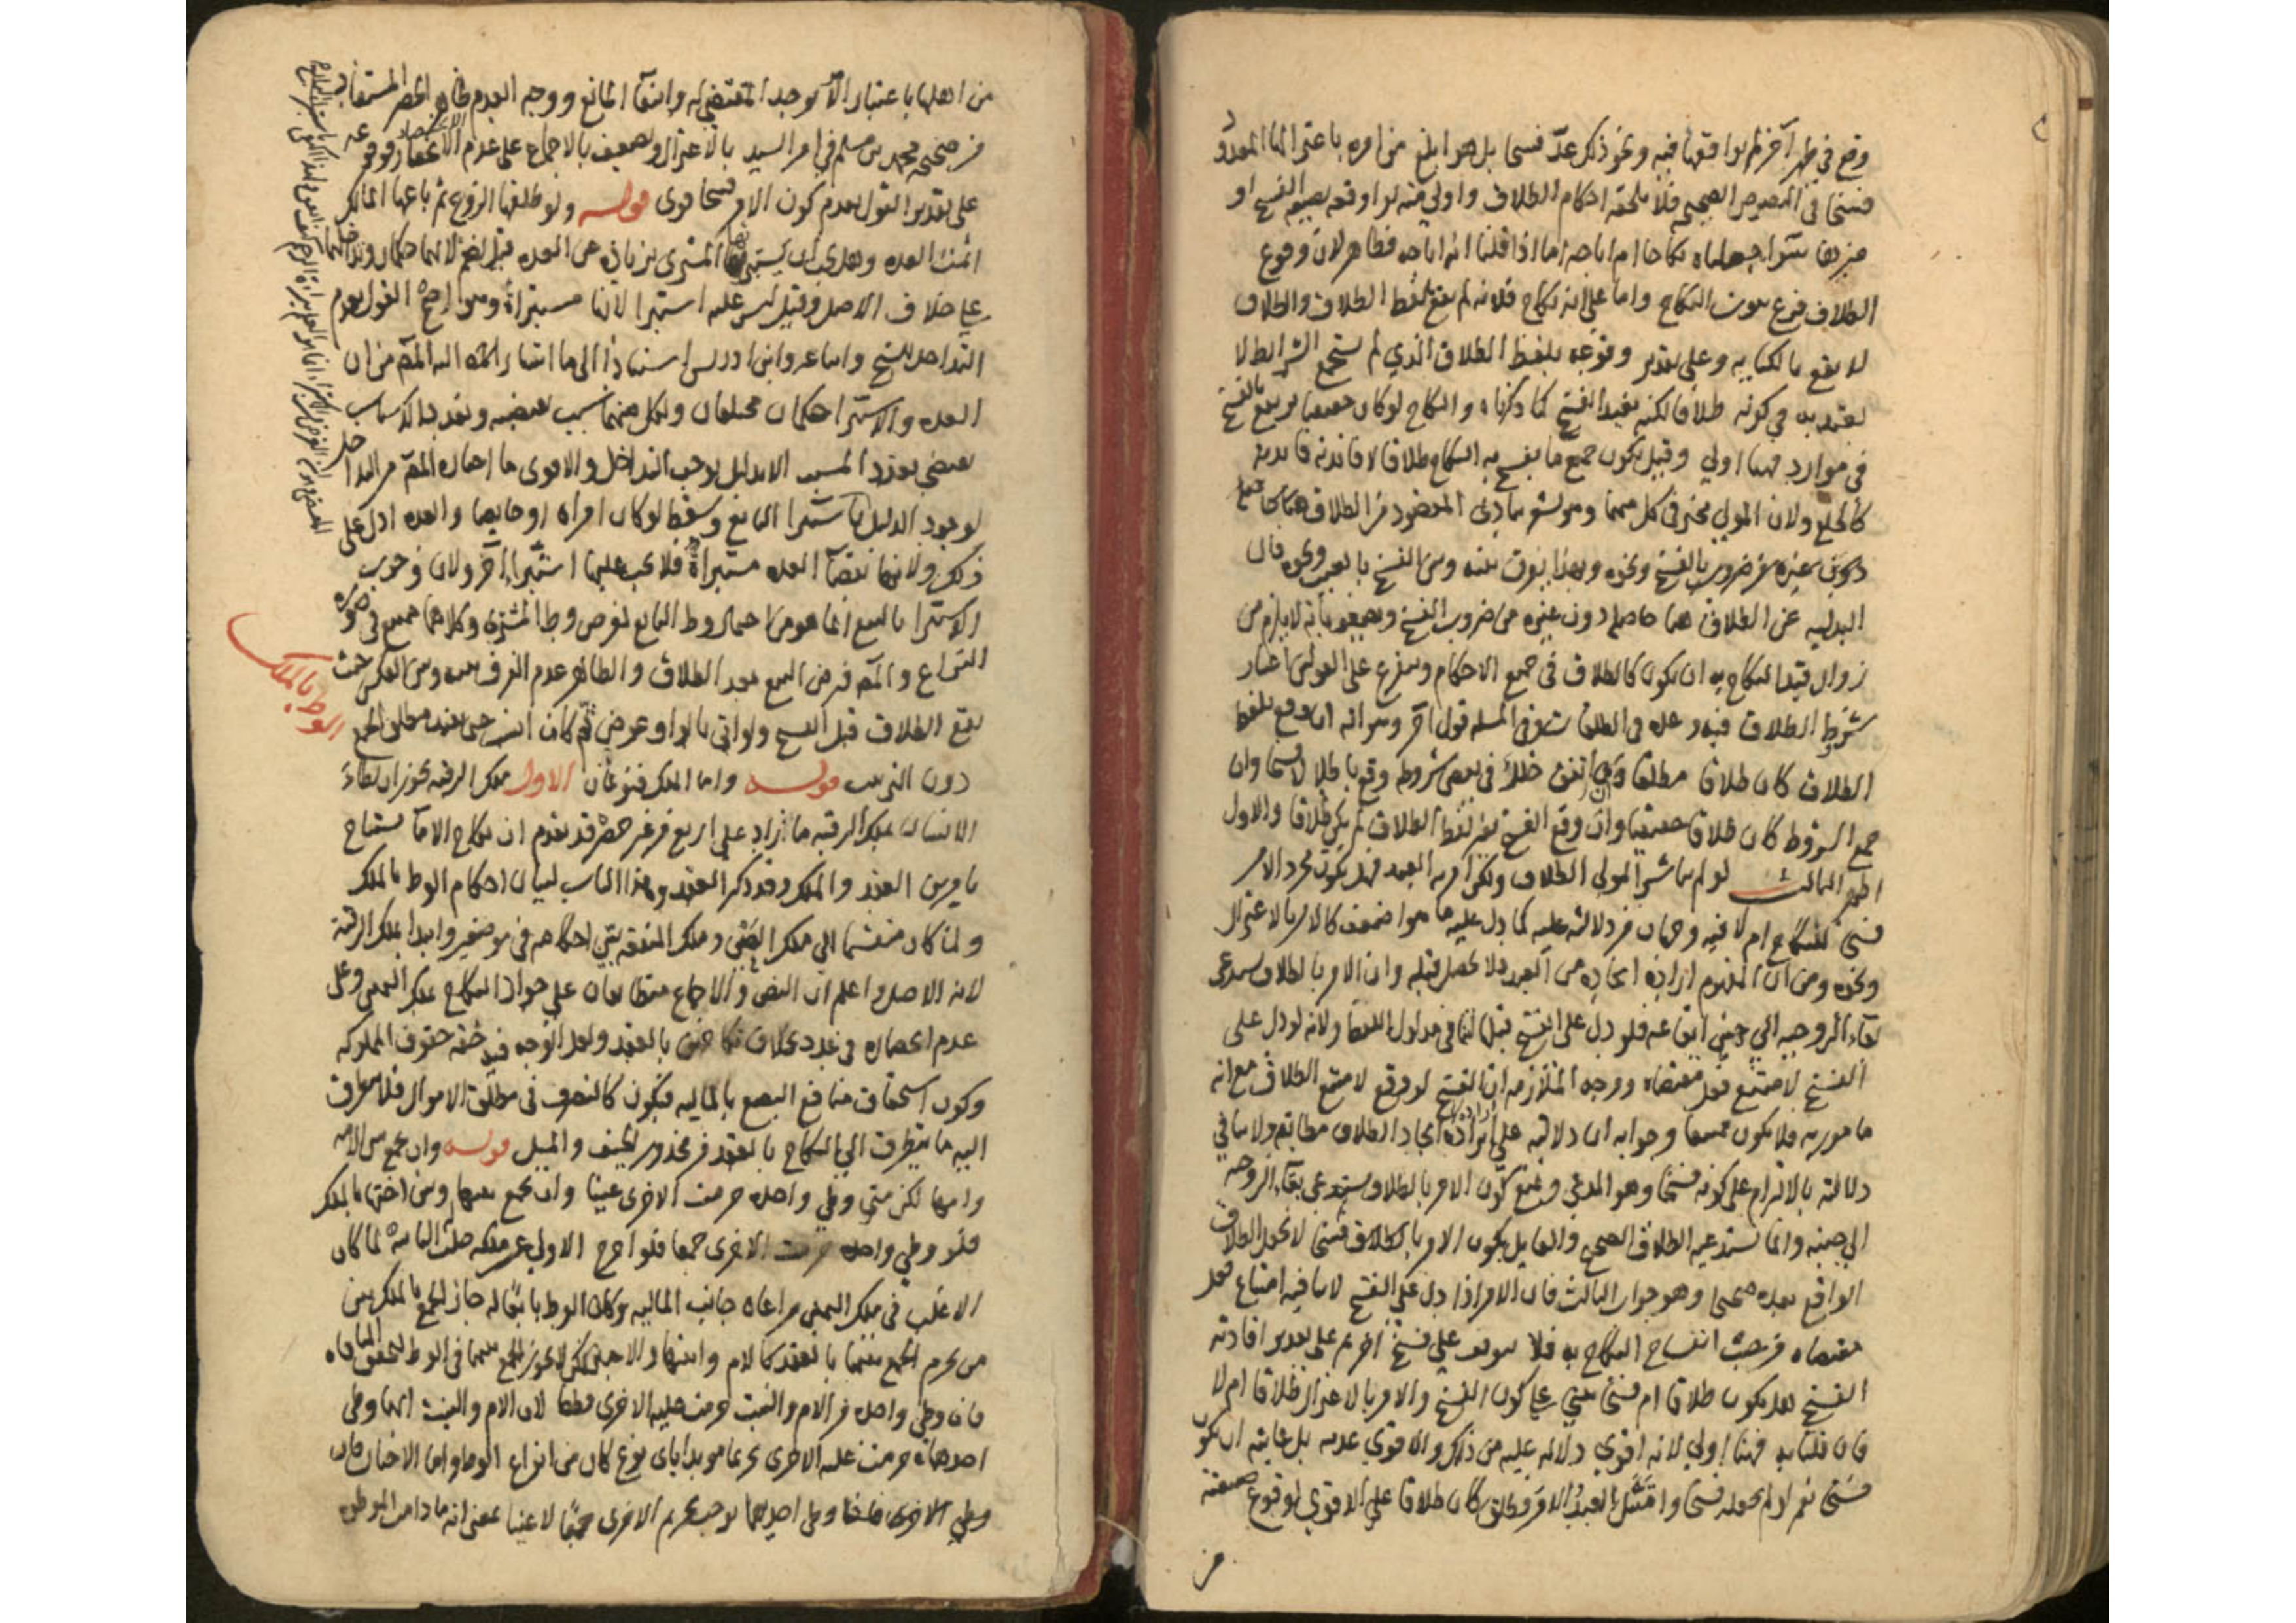 وقع في طهر آخر لم يواقعها فيه ونحو ذلك عدّ فسخا بل هو ابلغ من امره باعتزالها المعدود
فسخا في النصوص الصحيحة فلا يلحقه احكام الطلاق واولى منه لو اوقعه بصيغة الفسخ او
غيرها سواء جعلناه نكاحا ام اباحة اما اذا قلنا انه اباحة فظاهر لان وقوع
الطلاق فرع ثبوت النكاح واما على انه نكاح فلانه لم يقع بلفظ الطلاق والطلاق
لا يقع بالكنايه وعلى تقدير وقوعه بلفظ الطلاق الذي لم يستجمع الشرايط لا
يعتد به في كونه طلاقا لكنه يفيد الفسخ كما ذكرناه والنكاح لو كان حقيقيا يرتفع بالفسخ
في موارد فهنا اولى وقيل يكون جميع ما يفسخ به النكاح طلاقا لافادته فايدته
كالخلع ولان المولى مخير في كل منهما
دون غيره من ضروب الفسخ ونحوه وبهذا يفرق بينه وبين الفسخ بالعيب ونحوه فان
البدلية عن الطلاق هنا حاصلة دون غيره من ضروب الفسخ ويضعف بانه لا يلزم من
زوال قيد النكاح به ان يكون كالطلاق في جميع الاحكام ويتفرع على القولين اعتبار
شروط الطلاق فيه وعده في الطلقات وفي المسئلة قول آخر وهو انه ان وقع بلفظ
الطلاق كان طلاقا مطلقا فان اتفق خلل في بعض شروطه وقع باطلا لا فسخا وان
جمع الشروط كان طلاقا حقيقيا وان وقع الفسخ بغير لفظ الطلاق لم يكن طلاقا والاول
اظهر الثالث لو لم يباشر المولى الطلاق ولكن امر به العبد فهل يكون مجرد الامر
فسخا للنكاح ام لا فيه وجهان من دلالته عليه كما دل عليه ما هو اضعف كالامر بالاعتزال
ونحوه ومن ان المفهوم ارادة ايجاده من العبد فلا يحصل قبله وان الامر بالطلاق يستدعي
بقاء الزوجية الى حين ايقاعه فلو دل على الفسخ قبلها لتنافى مدلول اللفظ ولانه لو دل على
الفسخ لامتنع فعل مقتضاه ووجه الملازمة ان الفسخ لو وقع لامتنع الطلاق مع انه
مامور به فلا يكون ممتنعا وجوابه ان دلالته على ارادة ايجاد الطلاق مطابقة ولا ينافي
دلالته بالالتزام على كونه فسخا وهو المدعى ويمنع كون الامر بالطلاق يستدعي بقاء الزوجية
الى حينه وانما تستدعيه الطلاق الصحيح والقايل بكون الامر بالطلاق فسخا لا يجعل الطلاق
الواقع بعده صحيحا وهو جواب الثالث فان الامر اذا دل على الفسخ لا ينافيه امتناع فعل
مقتضاه من حيث انفساخ النكاح به فلا يتوقف على فسخ آخر ثم على تقدير افادته
الفسخ هل يكون طلاقا ام فسخا يبنى على كون الفسخ والامر بالاعتزال طلاقا ام لا
فان قلنا به فهنا اولى لانه اقوى دلالة عليه من ذلك والاقوى عدمه بل غايته ان يكون
فسخا نعم لو لم نجعله فسخا وامتثل العبد الامر وطلق كان طلاقا على الاقوى لوقوع صيغته
من
من اهلها باعتبار الامر بوجد المقتضي له وانتفاء المانع ووجه العدم ظاهر الحصر المستفاد
من صحيحة محمد بن مسلم في امر السيد بالاعتزال ويضعف بالاجماع على عدم الانحصار
على تقدير القول بعدم كون الامر فسخا قوى قوله ولو طلقها الزوج ثم باعها المالك
اتمت العدة وهل يجب ان يستبرئها المشتري بزيادة عن العدة قيل نعم لانهما حكمان وتداخلهما
على خلاف الاصل وقيل ليس عليه استبراء لانها مستبرأة وهو اصح القول بعدم
التداخل للشيخ واتباعه وابن ادريس استنادا الى ما اشار المصنف اليه المصنف من ان
العدة والاستبراء حكمان مختلفان ولكل منهما سبب يقتضيه وتعدد الاسباب
يقتضي تعدد المسبب الا بدليل يوجب التداخل والاقوى ما اختاره المصنف من التداخل
لوجود الدليل
ذلك ولانها بقضاء العدة مستبرأة فلا يجب عليها استبراء آخر ولان وجوب
الاستبراء بالبيع انما هو من احتمال وطء البايع لغرض وطء المشتري وكلاهما ممتنع في صورة
النزاع والمصنف فرض البيع بعد الطلاق والظاهر عدم الفرق بينه وبين العكس حيث
يقع الطلاق قبل الفسخ ولو اتى بالواو عوض ثم كان
الوطء بالملك
دون الترتيب قوله واما الملك فنوعان الاول ملك الرقبة يجوز ان يطاء
الانسان بملك الرقبة ما زاد على اربع من غير حصر قد تقدم ان نكاح الاماء يستباح
بامرين العقد والملك وقد ذكر العقد وهذا الباب لبيان احكام الوطء بالملك
ولما كان منقسما الى ملك العين وملك المنفعة بين احكامه في موضعين وابتدا بملك الرقبة
لانه الاصل واعلم ان النص والاجماع متطابقان على جواز النكاح بملك اليمين وعلى
عدم انحصاره في عدد بخلاف نكاحهن بالعقد ولعل الوجه فيه خفة حقوق المملوكة
وكون استحقاق منافع البضع بالمالية فيكون كالتصرف في مطلق الاموال فلا يتطرق
اليه ما يتطرق الى النكاح بالعقد من محذور الحيف والميل قوله وان يجمع بين الامة
وامها لكن متى وطي واحدة حرمت الاخرى عينا وان يجمع بينها وبين اختها بالملك
فلو وطي واحدة حرمت الاخرى جمعا فلو اخرج الاولى عن ملكه حلت الثانية لما كان
الاغلب في ملك اليمين مراعاة جانب المالية وكان الوطء تابعا له جاز الجمع بالملك بين
من يحرم الجمع بينهما بالعقد كالام وابنتها والاختين لكن لا يجوز الجمع بينهما في الوطء لتحقق المنافاة
فان وطي واحدة من الام والبنت حرمت عليه الاخرى مطلقا لان الام والبنت ايهما وطي
احدهما حرمت عليه الاخرى تحريما مؤبدا باي نوع كان من انواع الوطء واما الاختان فان
وطي احديهما يوجب تحريم الاخرى جمعا لا عينا بمعنى انه ما دامت الموطوءة